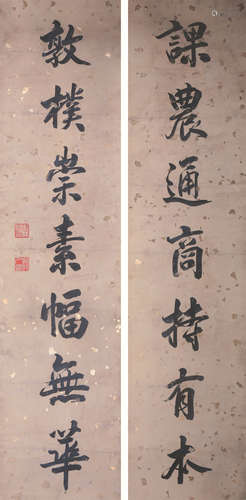 課農通商持有本
敦樸崇素幅無華